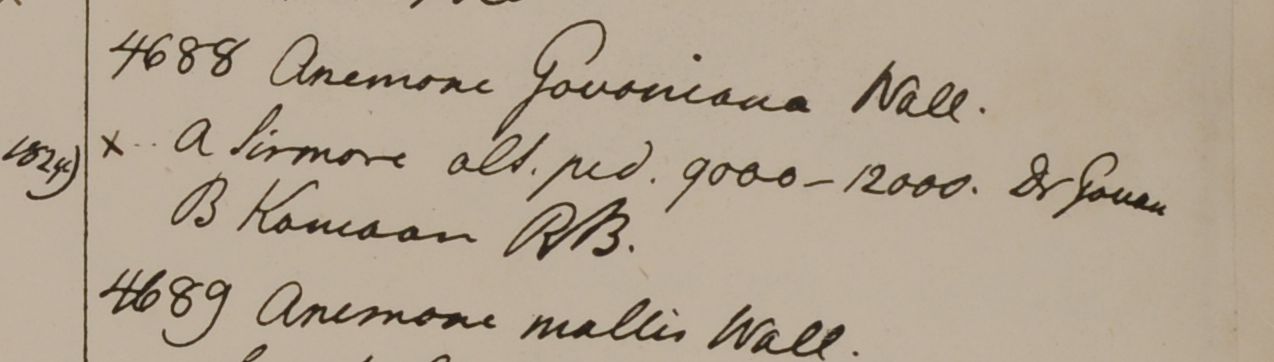 4688 Anemone Govaniana Wall.
1824) x A Sirmore alt. ped. 9000–12000. Dr Govan
B Kamaon RB.
4689 Anemone mollis Wall.